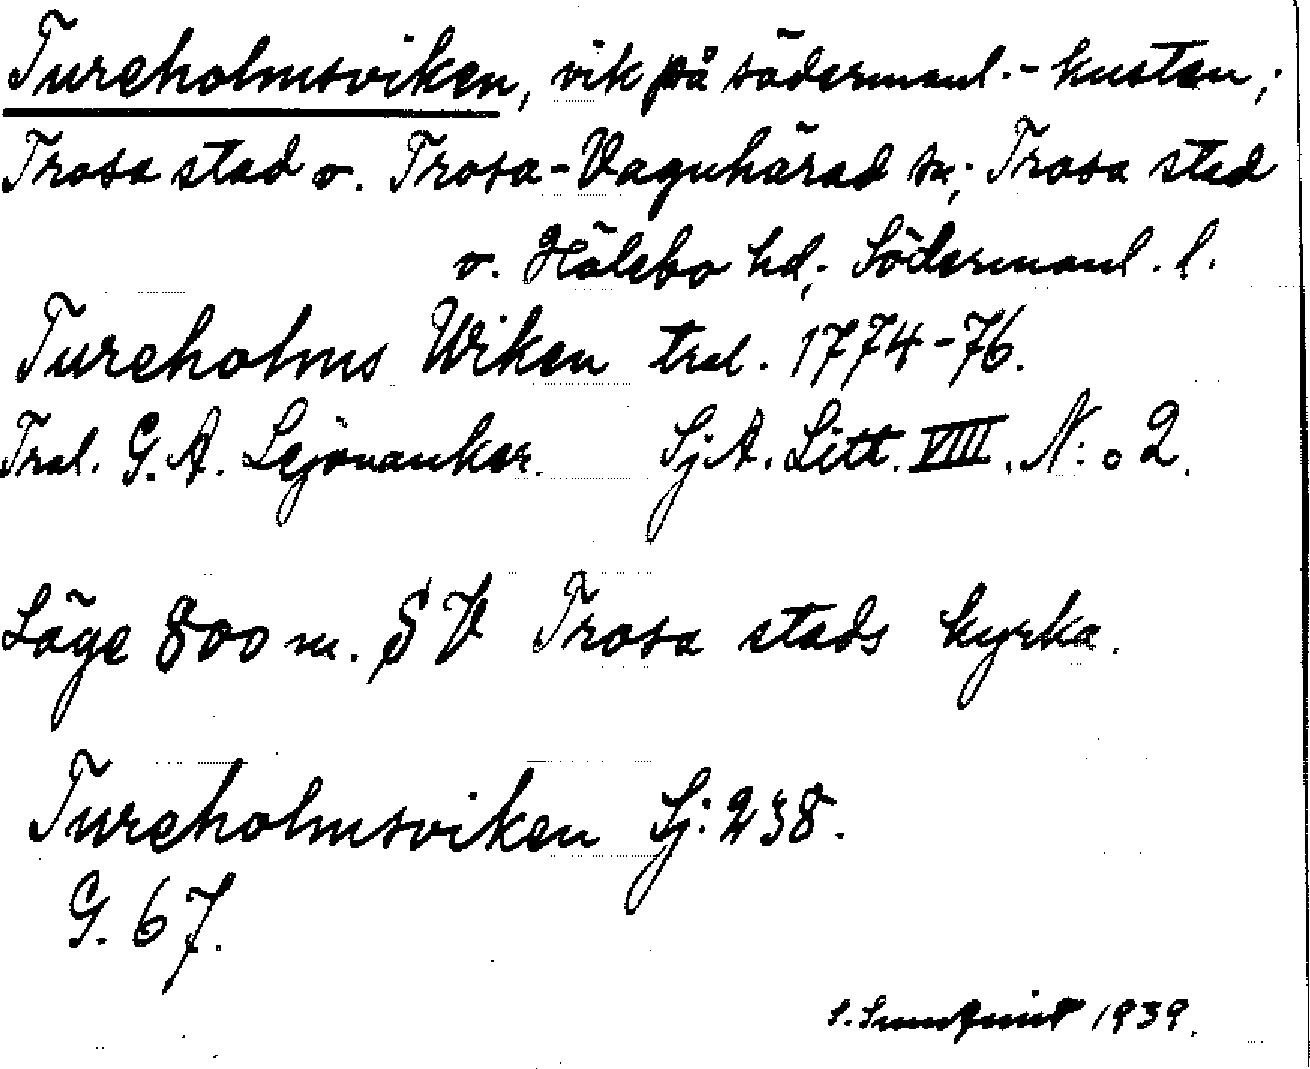 Tureholmsviken, vik på södermanl.-kusten;
Trosa stad o. Trosa-Vagnhärad sn; Trosa stad
o. Hölebo hd; Södermanl. l.
Tureholms Wiken tral. 1774-76.
Tral. G. A. Lejonanker. SjA. Litt. VIII. N:o 2.
Läge 800 m. SV Trosa stads kyrka.
Tureholmsviken Sj: 238.
G. 67.
S. Sundquist 1939.